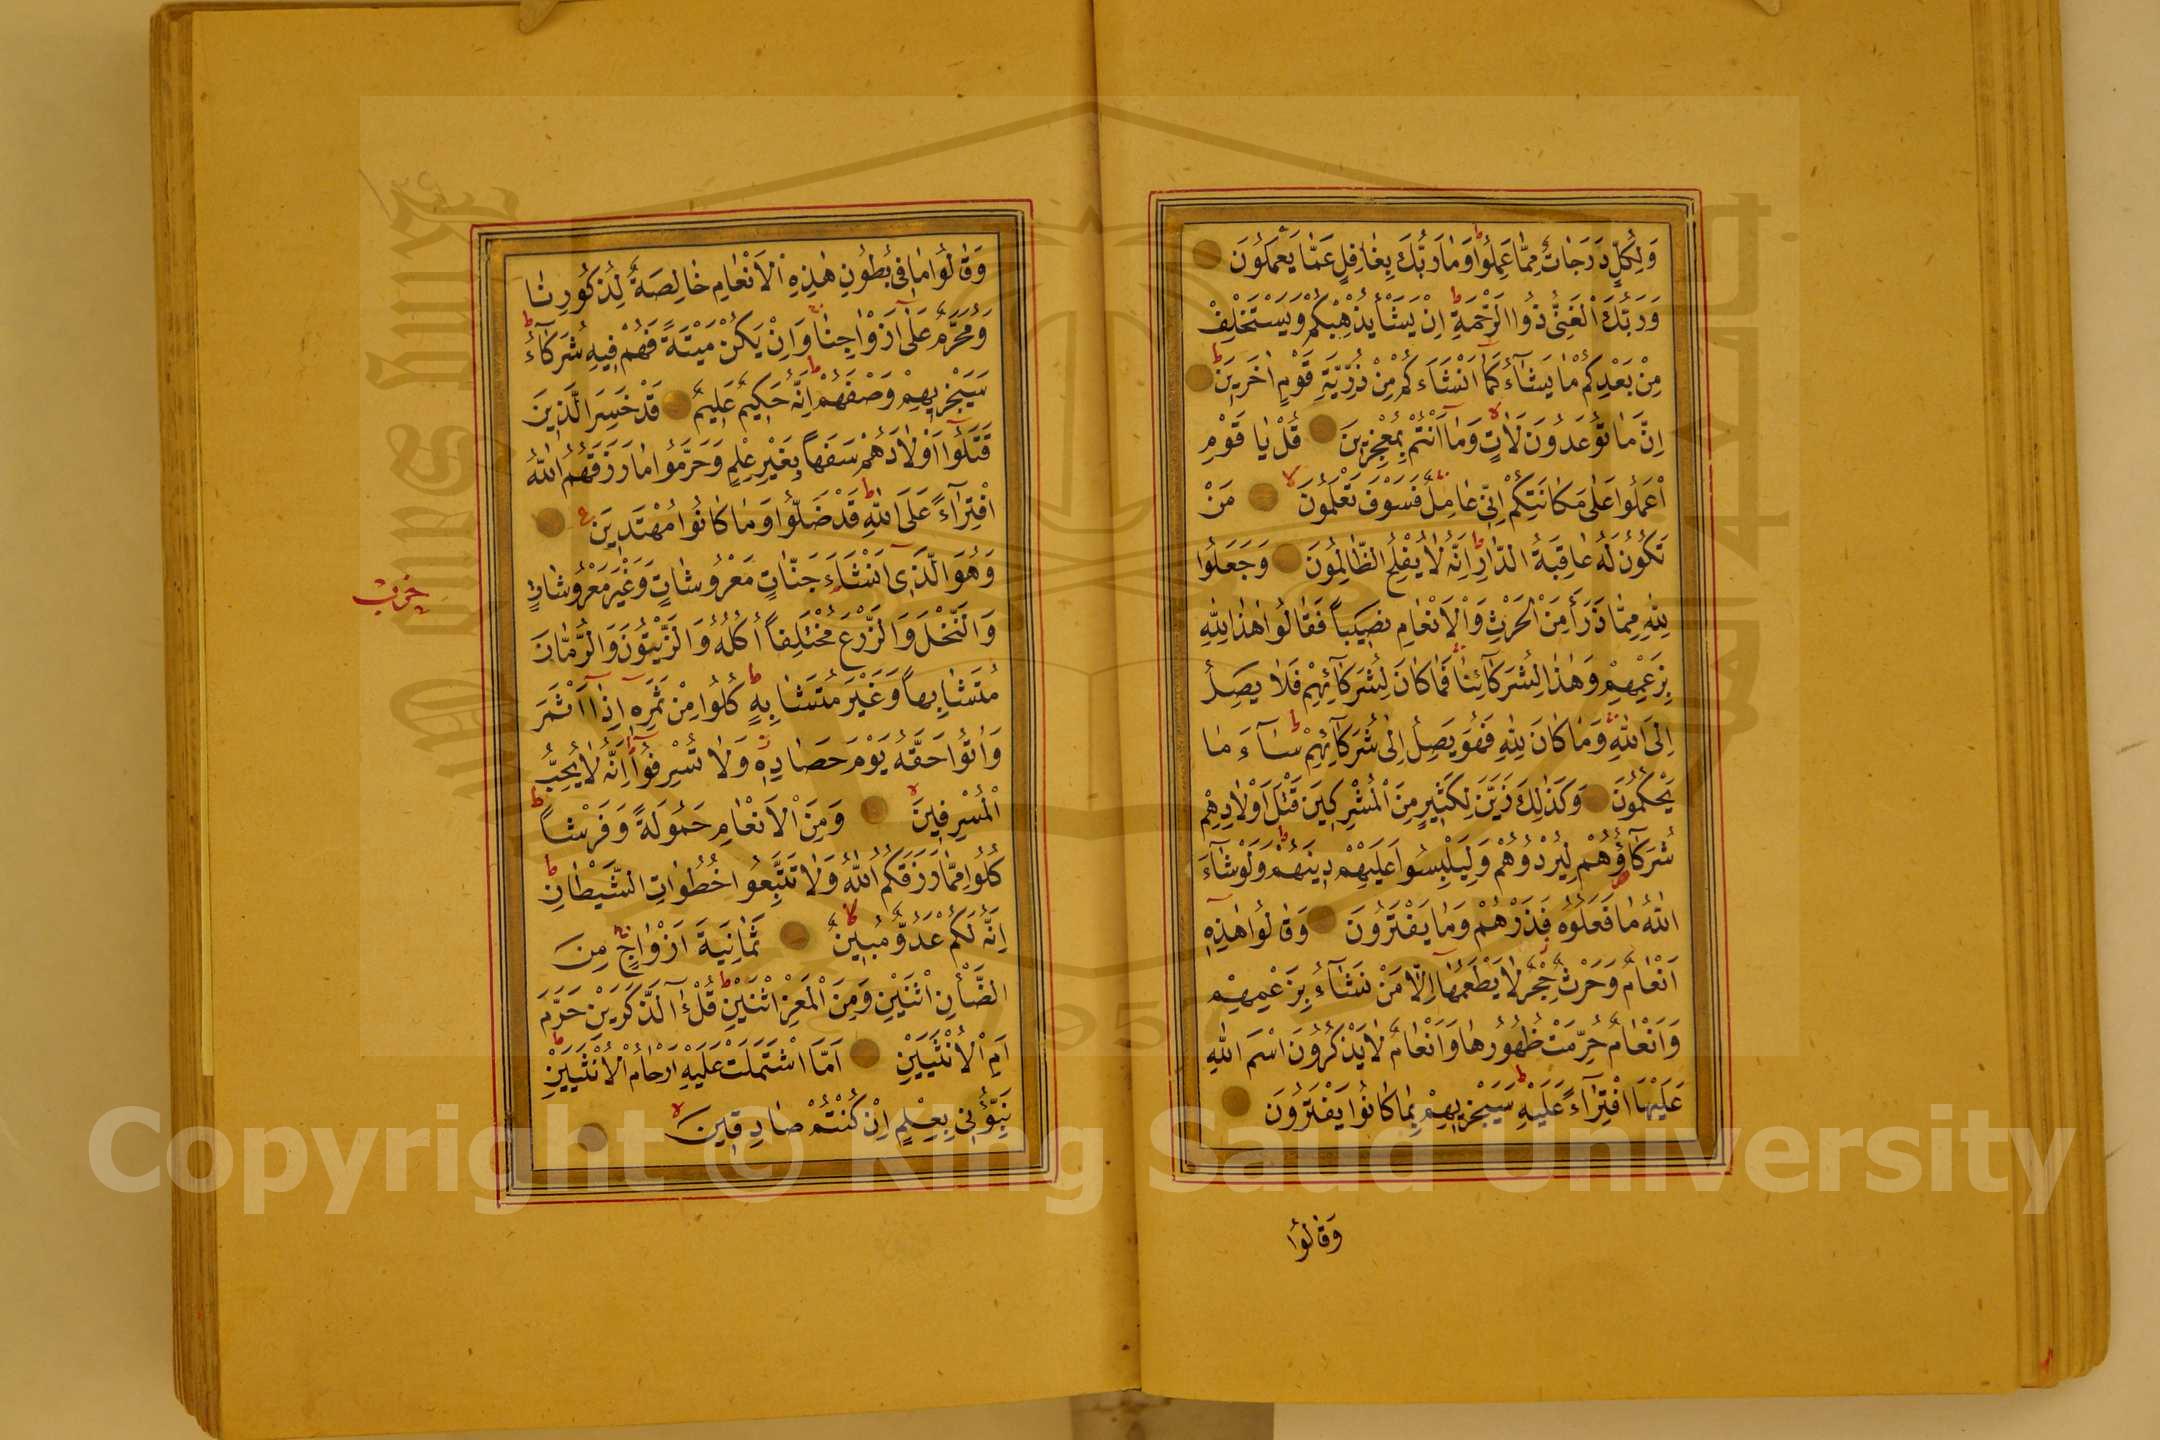 وَلِكُلٍّ دَرَجَاتٌ مِمَّا عَمِلُوا وَمَا رَبُّكَ بِغَافِلٍ عَمَّا يَعْمَلُونَ
وَرَبُّكَ الْغَنِيُّ ذُو الرَّحْمَةِ اِنْ يَشَأْ يُذْهِبْكُمْ وَيَسْتَخْلِفْ
مِنْ بَعْدِكُمْ مَا يَشَآءُ كَمَآ اَنْشَاَكُمْ مِنْ ذُرِّيَّةِ قَوْمٍ اٰخَرِينَ
اِنَّ مَا تُوعَدُونَ لَاٰتٍ وَمَآ اَنْتُمْ بِمُعْجِزِينَ قُلْ يَا قَوْمِ
اعْمَلُوا عَلٰى مَكَانَتِكُمْ اِنِّي عَامِلٌ فَسَوْفَ تَعْلَمُونَ مَنْ
تَكُونُ لَهُ عَاقِبَةُ الدَّارِ اِنَّهُ لَا يُفْلِحُ الظَّالِمُونَ وَجَعَلُوا
لِلّٰهِ مِمَّا ذَرَأَ مِنَ الْحَرْثِ وَالْاَنْعَامِ نَصِيبًا فَقَالُوا هٰذَا لِلّٰهِ
بِزَعْمِهِمْ وَهٰذَا لِشُرَكَآئِنَا فَمَا كَانَ لِشُرَكَآئِهِمْ فَلَا يَصِلُ
اِلَى اللّٰهِ وَمَا كَانَ لِلّٰهِ فَهُوَ يَصِلُ اِلٰى شُرَكَآئِهِمْ سَآءَ مَا
يَحْكُمُونَ وَكَذٰلِكَ زَيَّنَ لِكَثِيرٍ مِنَ الْمُشْرِكِينَ قَتْلَ اَوْلَادِهِمْ
شُرَكَآؤُهُمْ لِيُرْدُوهُمْ وَلِيَلْبِسُوا عَلَيْهِمْ دِينَهُمْ وَلَوْ شَآءَ
اللّٰهُ مَا فَعَلُوهُ فَذَرْهُمْ وَمَا يَفْتَرُونَ وَقَالُوا هٰذِهِ
اَنْعَامٌ وَحَرْثٌ حِجْرٌ لَا يَطْعَمُهَآ اِلَّا مَنْ نَشَآءُ بِزَعْمِهِمْ
وَاَنْعَامٌ حُرِّمَتْ ظُهُورُهَا وَاَنْعَامٌ لَا يَذْكُرُونَ اسْمَ اللّٰهِ
عَلَيْهَا افْتِرَآءً عَلَيْهِ سَيَجْزِيهِمْ بِمَا كَانُوا يَفْتَرُونَ
وَقَالُوا
وَقَالُوا مَا فِي بُطُونِ هٰذِهِ الْاَنْعَامِ خَالِصَةٌ لِذُكُورِنَا
وَمُحَرَّمٌ عَلٰٓى اَزْوَاجِنَا وَاِنْ يَكُنْ مَيْتَةً فَهُمْ فِيهِ شُرَكَآءُ
سَيَجْزِيهِمْ وَصْفَهُمْ اِنَّهُ حَكِيمٌ عَلِيمٌ قَدْ خَسِرَ الَّذِينَ
قَتَلُوٓا اَوْلَادَهُمْ سَفَهًا بِغَيْرِ عِلْمٍ وَحَرَّمُوا مَا رَزَقَهُمُ اللّٰهُ
افْتِرَآءً عَلَى اللّٰهِ قَدْ ضَلُّوا وَمَا كَانُوا مُهْتَدِينَ
وَهُوَ الَّذِىٓ اَنْشَاَ جَنَّاتٍ مَعْرُوشَاتٍ وَغَيْرَ مَعْرُوشَاتٍ
وَالنَّخْلَ وَالزَّرْعَ مُخْتَلِفًا اُكُلُهُ وَالزَّيْتُونَ وَالرُّمَّانَ
مُتَشَابِهًا وَغَيْرَ مُتَشَابِهٍ كُلُوا مِنْ ثَمَرِهِٓ اِذَآ اَثْمَرَ
وَاٰتُوا حَقَّهُ يَوْمَ حَصَادِهِ وَلَا تُسْرِفُوٓا اِنَّهُ لَا يُحِبُّ
الْمُسْرِفِينَ وَمِنَ الْاَنْعَامِ حَمُولَةً وَفَرْشًا
كُلُوا مِمَّا رَزَقَكُمُ اللّٰهُ وَلَا تَتَّبِعُوا خُطُوَاتِ الشَّيْطَانِ
اِنَّهُ لَكُمْ عَدُوٌّ مُبِينٌ ثَمَانِيَةَ اَزْوَاجٍ مِنَ
الضَّأْنِ اثْنَيْنِ وَمِنَ الْمَعْزِ اثْنَيْنِ قُلْ ءٰٓالذَّكَرَيْنِ حَرَّمَ
اَمِ الْاُنْثَيَيْنِ اَمَّا اشْتَمَلَتْ عَلَيْهِ اَرْحَامُ الْاُنْثَيَيْنِ
نَبِّؤُنِي بِعِلْمٍ اِنْ كُنْتُمْ صَادِقِينَ
Copyright © King Saud University
1957